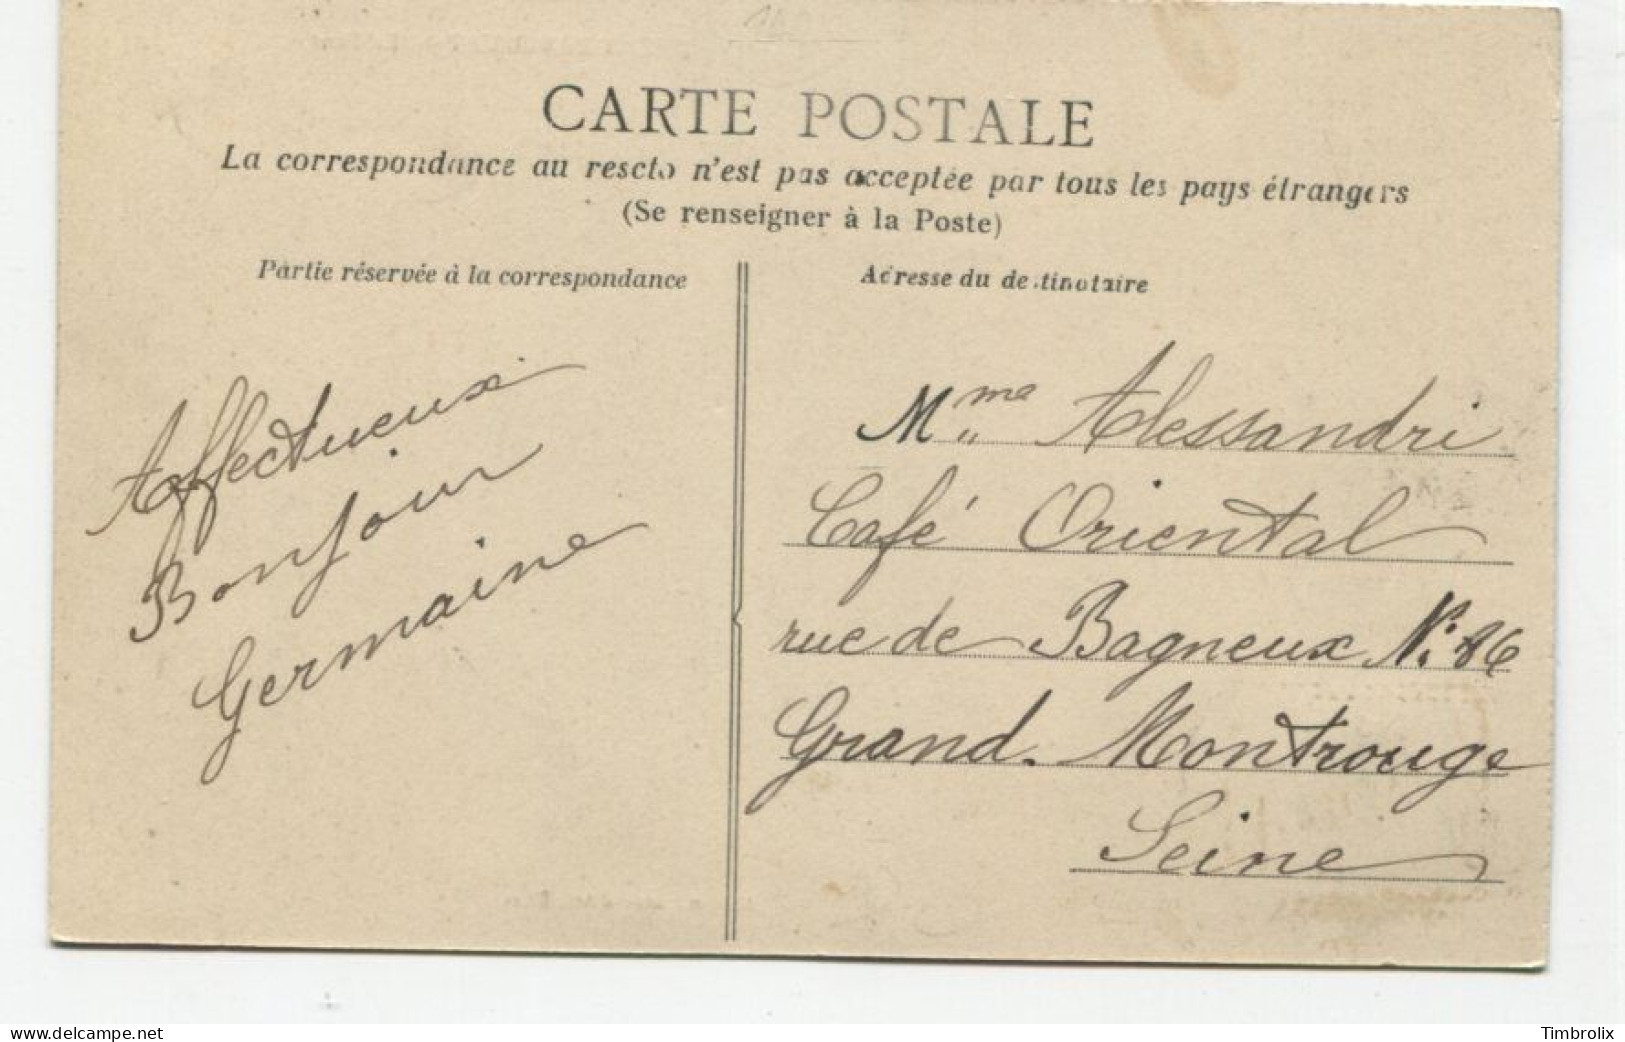 CARTE POSTALE
La correspondance au rescto n'est pas acceptée par tous les pays étrangers
(Se renseigner à la Poste)
Partie réservée à la correspondance
Affectueux
Bonjour
Germaine
Adresse du destinataire
Mme Alessandri
Café Oriental
rue de Bagneux No. 86
Grand. Montrouge
Seine
www.delcampe.net
Timbrolix